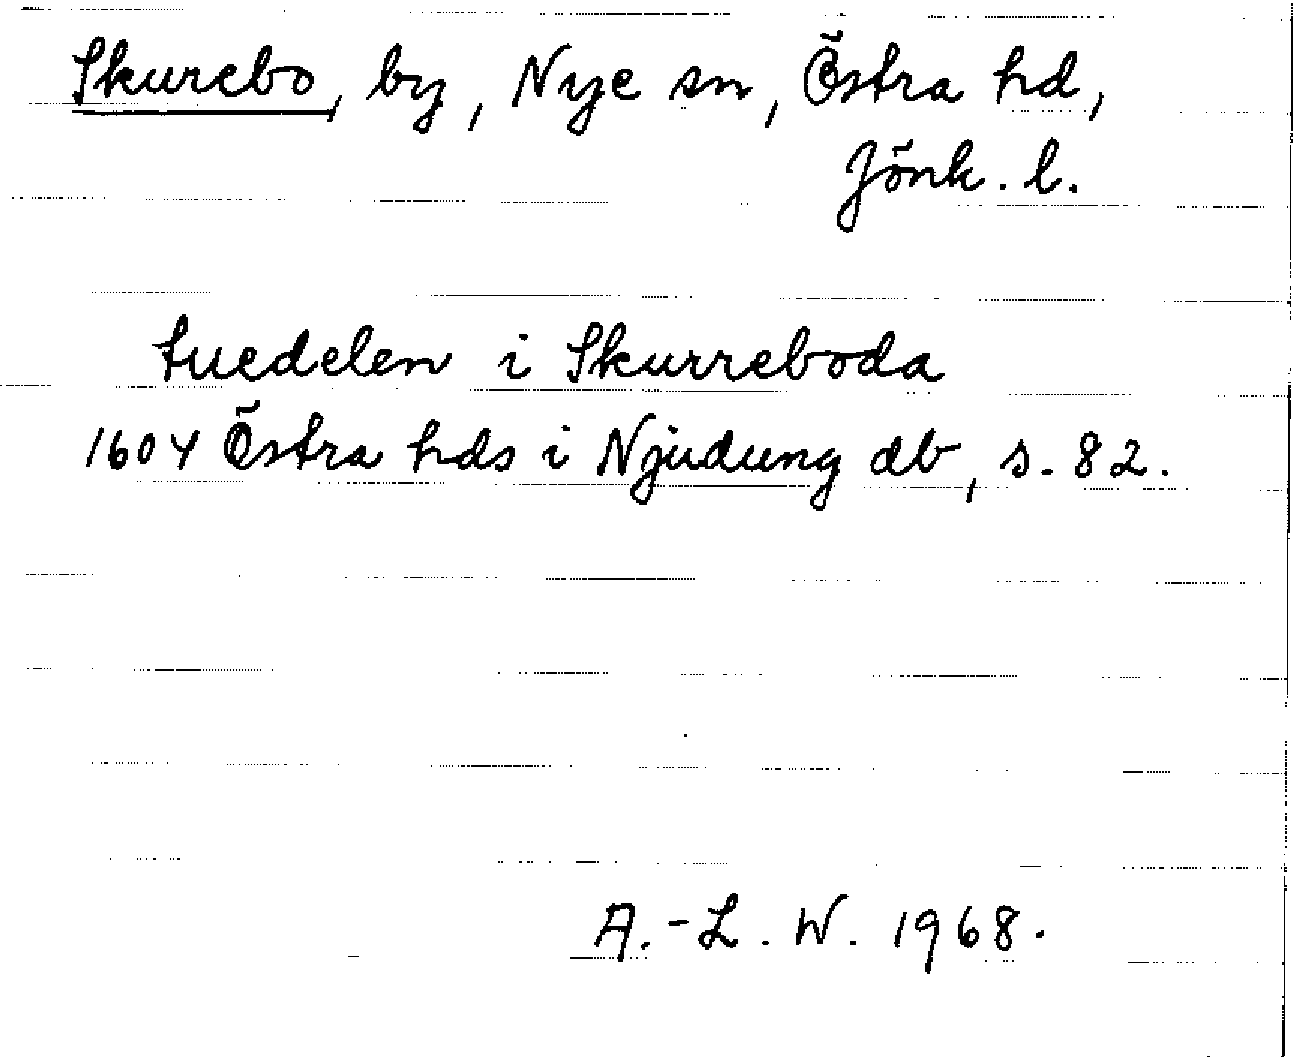 Skurebo, by, Nye sn, Östra hd,
Jönk. l.
tuedelen i Skurreboda
1604 Östra hds i Njudung db, s. 82.
A.-L. W. 1968.